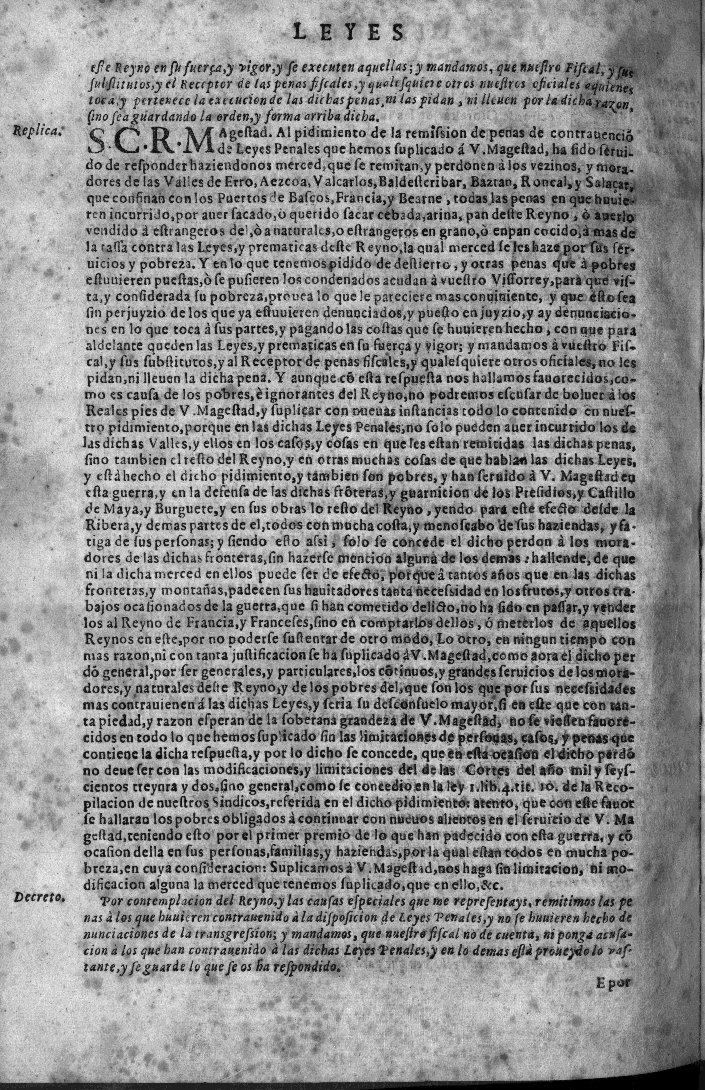 LEYES
este Reyno en su fuerça, y vigor, y se executen aquellas; y mandamos, que nuestro Fiscal, y sus
substitutos, y el Receptor de las penas fiscales, y qualesquiere otros nuestros oficiales aquienes
toca, y pertenece la execucion de las dichas penas, ni las pidan, ni lleuen por la dicha razon,
sino sea guardando la orden, y forma arriba dicha.
Replica. S. C. R. MAgestad. Al pidimiento de la remission de penas de contrauenciõ
de Leyes Penales que hemos suplicado á V. Magestad, ha sido serui-
do de responder haziendonos merced, que se remitan, y perdonen à los vezinos, y mora-
dores de las Valles de Erro, Aezcoa, Valcarlos, Baldestcribar, Baztan, Roncal, y Salaçar,
que confinan con los Puertos de Basços, Francia, y Bearne, todas las penas en que huuie-
ren incurrido, por auer sacado, ò querido sacar cebada, arina, pan deste Reyno, ò auerlo
vendido á estrangeros del, ò a naturales, o estrangeros en grano, ò en pan cocido, à mas de
la tassa contra las Leyes, y prematicas deste Reyno, la qual merced se les haze por sus ser-
uicios y pobreza. Y en lo que tenemos pidido de destierro, y otras penas que à pobres
estuuieren puestas, ò se pusieren los condenados acudan à vuestro Vissorrey, para que vis-
ta, y considerada su pobreza, prouea lo que le pareciere mas conuiniente, y que esto sea
sin perjuyzio de los que ya estuuieren denunciados, y puesto en juyzio, y ay denunciacio-
nes en lo que toca à sus partes, y pagando las costas que se huuieren hecho, con que para
aldelante queden las Leyes, y prematicas en su fuerça y vigor; y mandamos à vuestro Fis-
cal, y sus substitutos, y al Receptor de penas fiscales, y qualesquiere otros oficiales, no les
pidan, ni lleuen la dicha pena. Y aunque cõ esta respuesta nos hallamos fauorecidos, co-
mo es causa de los pobres, è ignorantes del Reyno, no podremos escusar de boluer à los
Reales pies de V. Magestad, y suplicar con nueuas instancias todo lo contenido en nues-
tro pidimiento, porque en las dichas Leyes Penales, no solo pueden auer incurrido los de
las dichas Valles, y ellos en los casos, y cosas en que les estan remitidas las dichas penas,
sino tambien el resto del Reyno, y en otras muchas cosas de que hablan las dichas Leyes,
y està hecho el dicho pidimiento, y tambien son pobres, y han seruido à V. Magestad en
esta guerra, y en la defensa de las dichas frõteras, y guarnicion de los Presidios, y Castillo
de Maya, y Burguete, y en sus obras lo resto del Reyno, yendo para este efecto desde la
Ribera, y demas partes de el, todos con mucha costa, y menoscabo de sus haziendas, y fa-
tiga de sus personas; y siendo esto assi, solo se concede el dicho perdon à los mora-
dores de las dichas fronteras, sin hazerse mencion alguna de los demas: hallende, de que
ni la dicha merced en ellos puede ser de efecto, porque â tantos años que en las dichas
fronteras, y montañas, padecen sus hauitadores tanta necessidad en los frutos, y otros tra-
bajos ocasionados de la guerra, que si han cometido delicto, no ha sido en passar, y vender
los al Reyno de Francia, y Franceses, sino en comprarlos dellos, ò meterlos de aquellos
Reynos en este, por no poderse sustentar de otro modo. Lo otro, en ningun tiempo con
mas razon, ni con tanta justificacion se ha suplicado à V. Magestad, como aora el dicho per
dõ general, por ser generales, y particulares, los cõtinuos, y grandes seruicios de los mora-
dores, y naturales deste Reyno, y de los pobres del, que son los que por sus necessidades
mas contrauienen á las dichas Leyes, y seria su desconsuelo mayor, si en este que con tan-
ta piedad, y razon esperan de la soberana grandeza de V. Magestad, no se viessen fauore-
cidos en todo lo que hemos suplicado sin las limitaciones de personas, casos, y penas que
contiene la dicha respuesta, y por lo dicho se concede, que en esta ocasion el dicho perdõ
no deue ser con las modificaciones, y limitaciones del de las Cortes del año mil y seys-
cientos treynta y dos, sino general, como se concedio en la ley 1. lib. 4. tit. 10. de la Reco-
pilacion de nuestros Sindicos, referida en el dicho pidimiento: atento, que con este fauor
se hallaran los pobres obligados à continuar con nueuos alientos en el seruicio de V. Ma
gestad, teniendo esto por el primer premio de lo que han padecido con esta guerra, y cõ
ocasion della en sus personas, familias, y haziendas, por la qual estan todos en mucha po-
breza, en cuya consideracion: Suplicamos à V. Magestad, nos haga sin limitacion, ni mo-
dificacion alguna la merced que tenemos suplicado, que en ello, &c.
Decreto. Por contemplacion del Reyno, y las causas especiales que me representays, remitimos las pe
nas à los que huuieren contrauenido à la disposicion de Leyes Penales, y no se huuieren hecho de
nunciaciones de la transgression; y mandamos, que nuestro fiscal no de cuenta, ni ponga acusa-
cion à los que han contrauenido à las dichas Leyes Penales, y en lo demas està proueydo lo vas-
tante, y se guarde lo que se os ha respondido.
E por